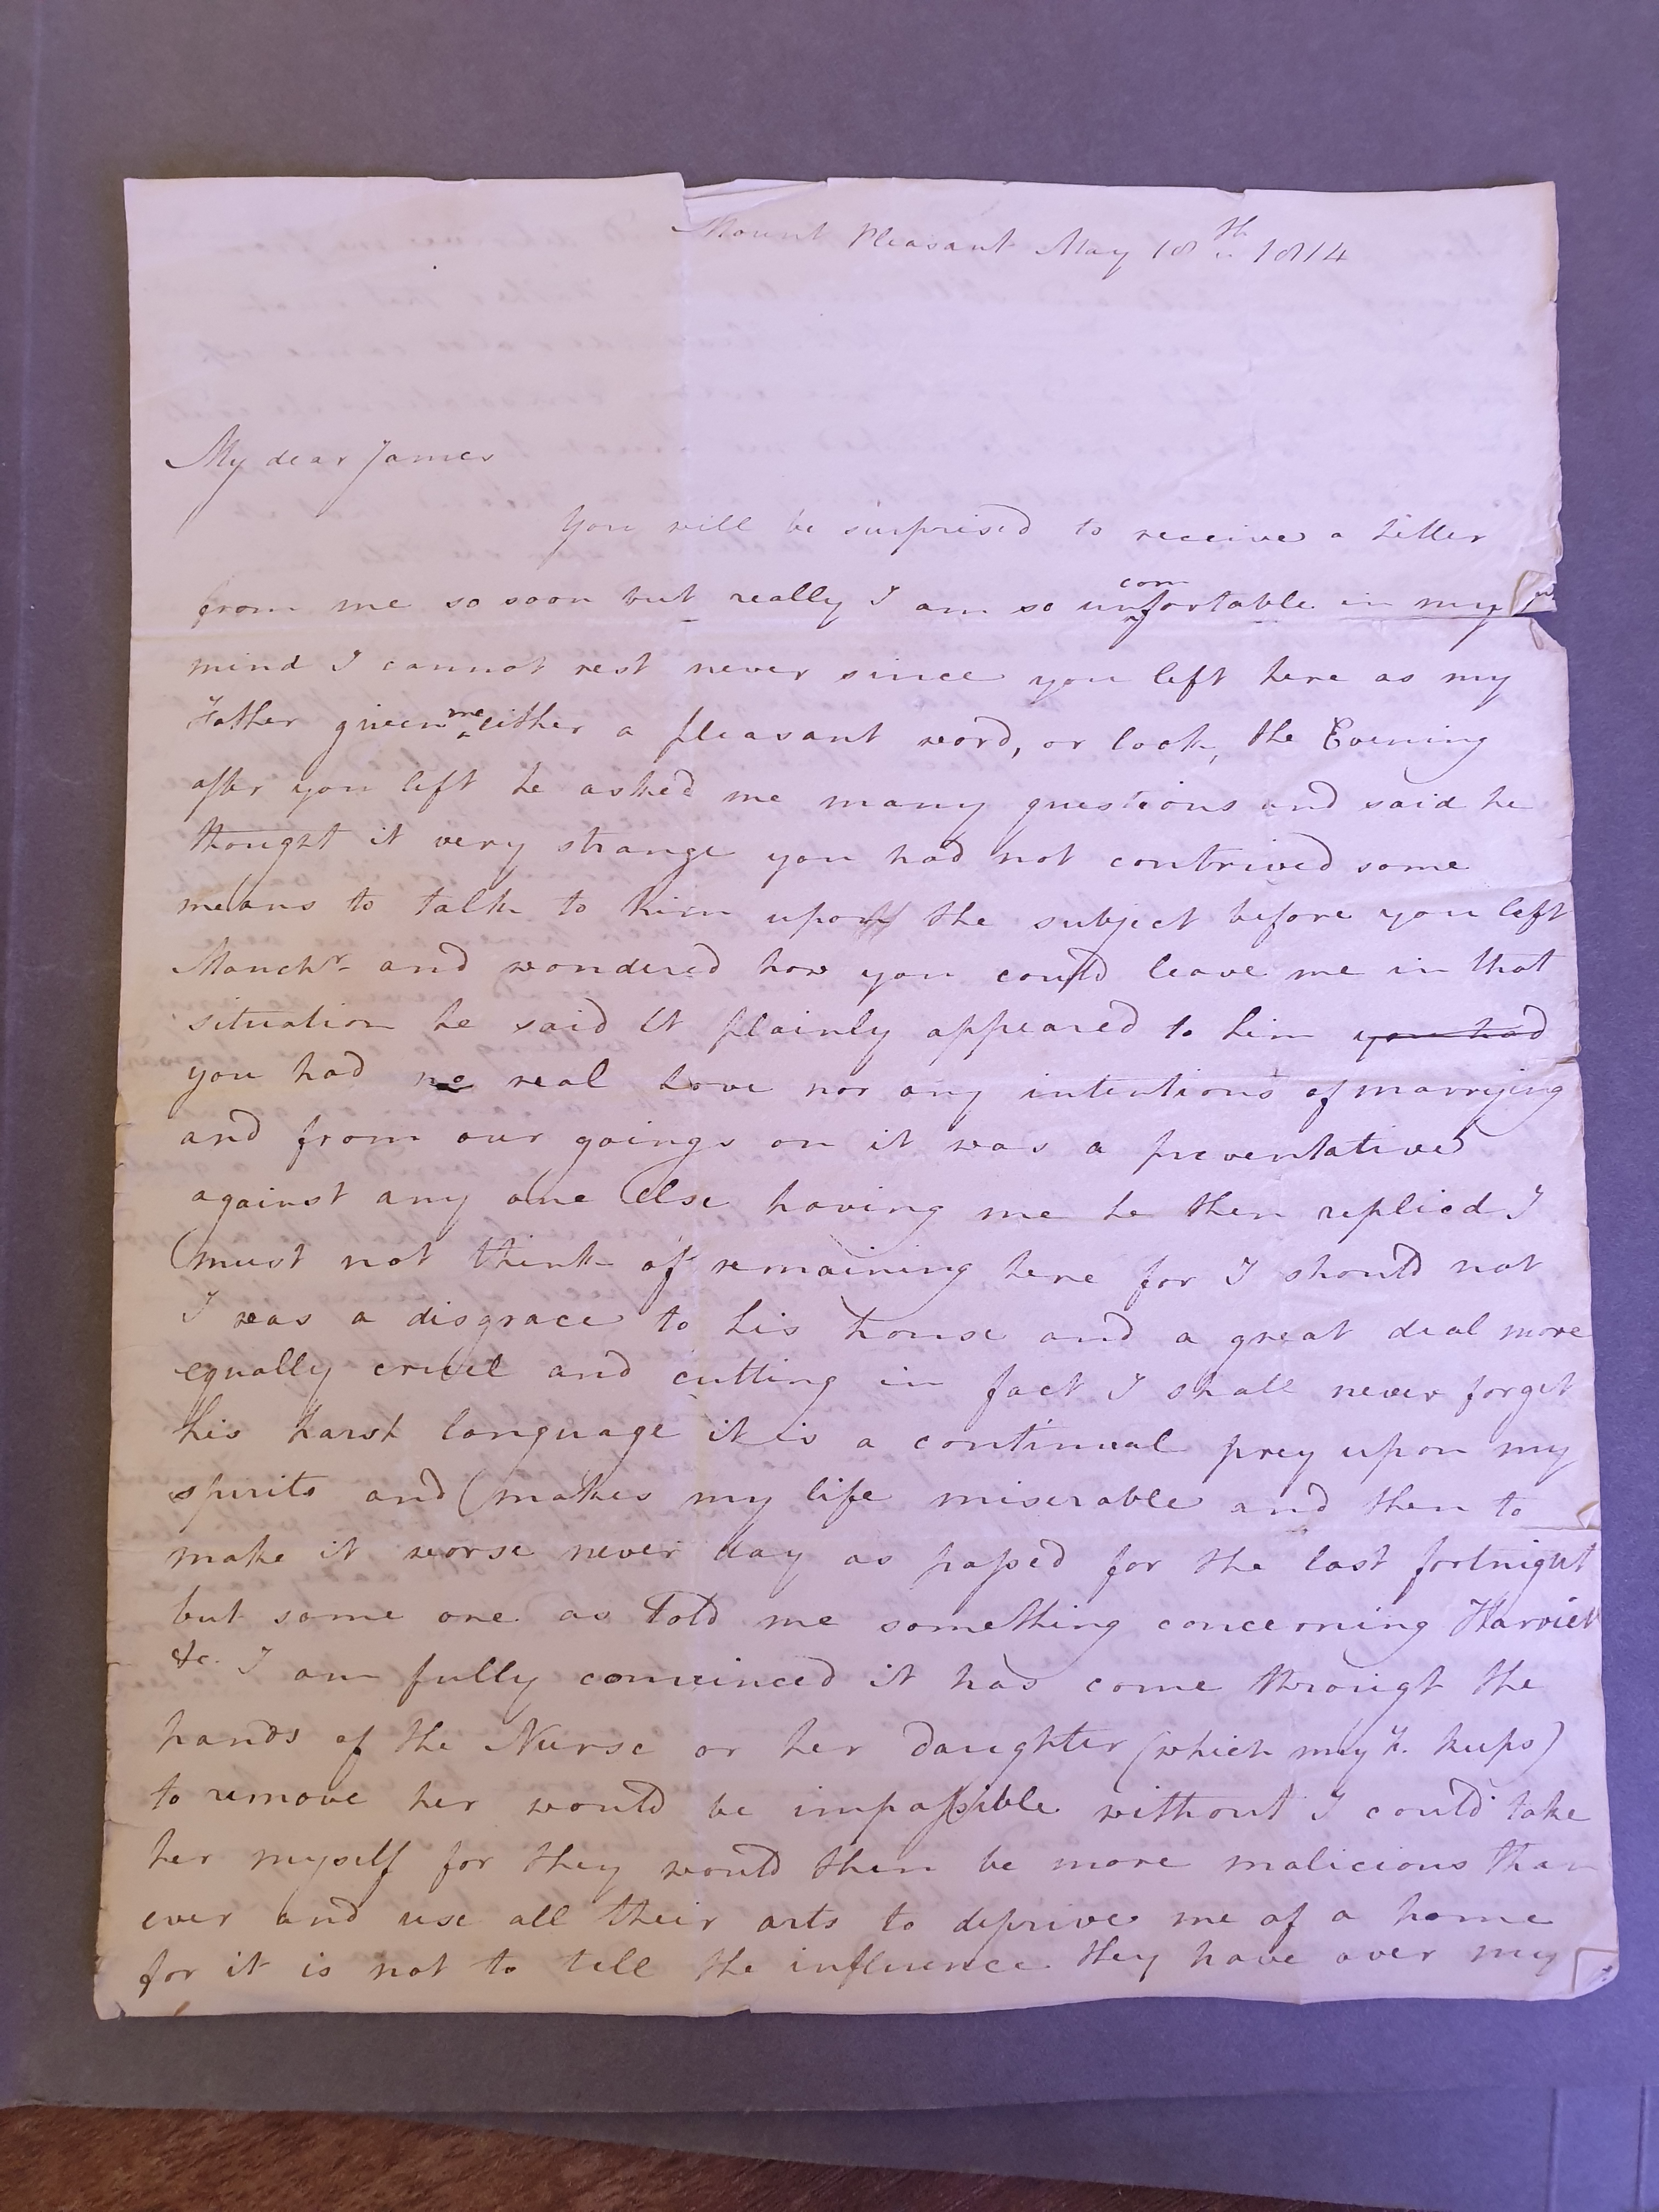 Mount Pleasant May 18th 1814
My dear James
You will be surprised to receive a Letter
from me so soon but really I am so uncomfortable in my
mind I cannot rest never since you left here as my
Father given me either a pleasant word, or look, the Evening
after you left he asked me many questions and said he
thought it very strange you had not contrived some
means to talk to him upon the subject before you left
Manchr. and wondered how you could leave me in that
situation he said it plainly appeared to him you had
you had no real Love nor any intentions of marrying
and from our goings on it was a preventative
against any one Else having me he then replied I
must not think of remaining here for I should not
I was a disgrace to his house and a great deal more
equally cruel and cutting in fact I shall never forget
his harsh language it is a continual prey upon my
spirits and makes my life miserable and then to
make it worse never day as passed for the last fortnight
but some one as Told me something concerning Harriet
&c. I am fully convinced it has come througt the
hands of the Nurse or her daughter (which my F. keeps)
to remove her would be impossible without I could take
her myself for they would then be more malicious than
ever and use all their arts to deprive me of a home
for it is not to tell the influence they have over my